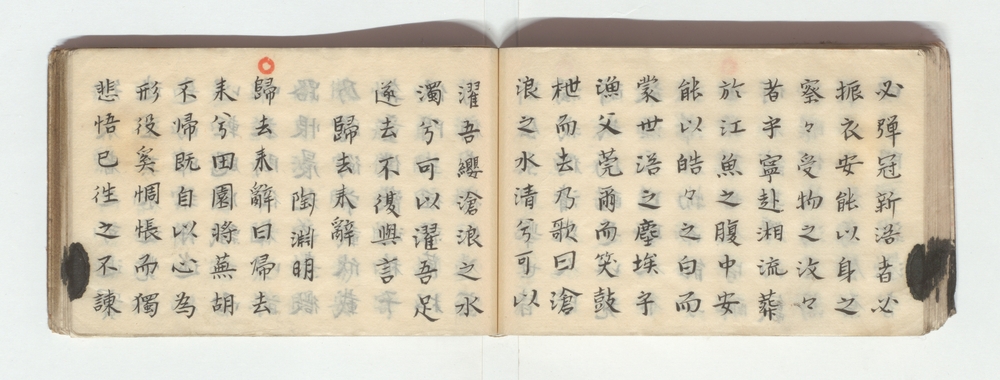 必彈冠新浴者必
振衣安能以身之
察々受物之汶々
者乎寧赴湘流葬
於江魚之腹中安
能以皓々之白而
蒙世浴之塵埃乎
漁父莞爾而笑鼓
枻而去乃歌曰滄
浪之水清兮可以
濯吾纓滄浪之水
濁兮可以濯吾足
遂去不復與言
歸去耒辭
陶淵明
歸去耒辭曰帰去
耒兮田園將蕪胡
不帰既自以心為
形役奚惆悵而獨
悲悟已往之不諫